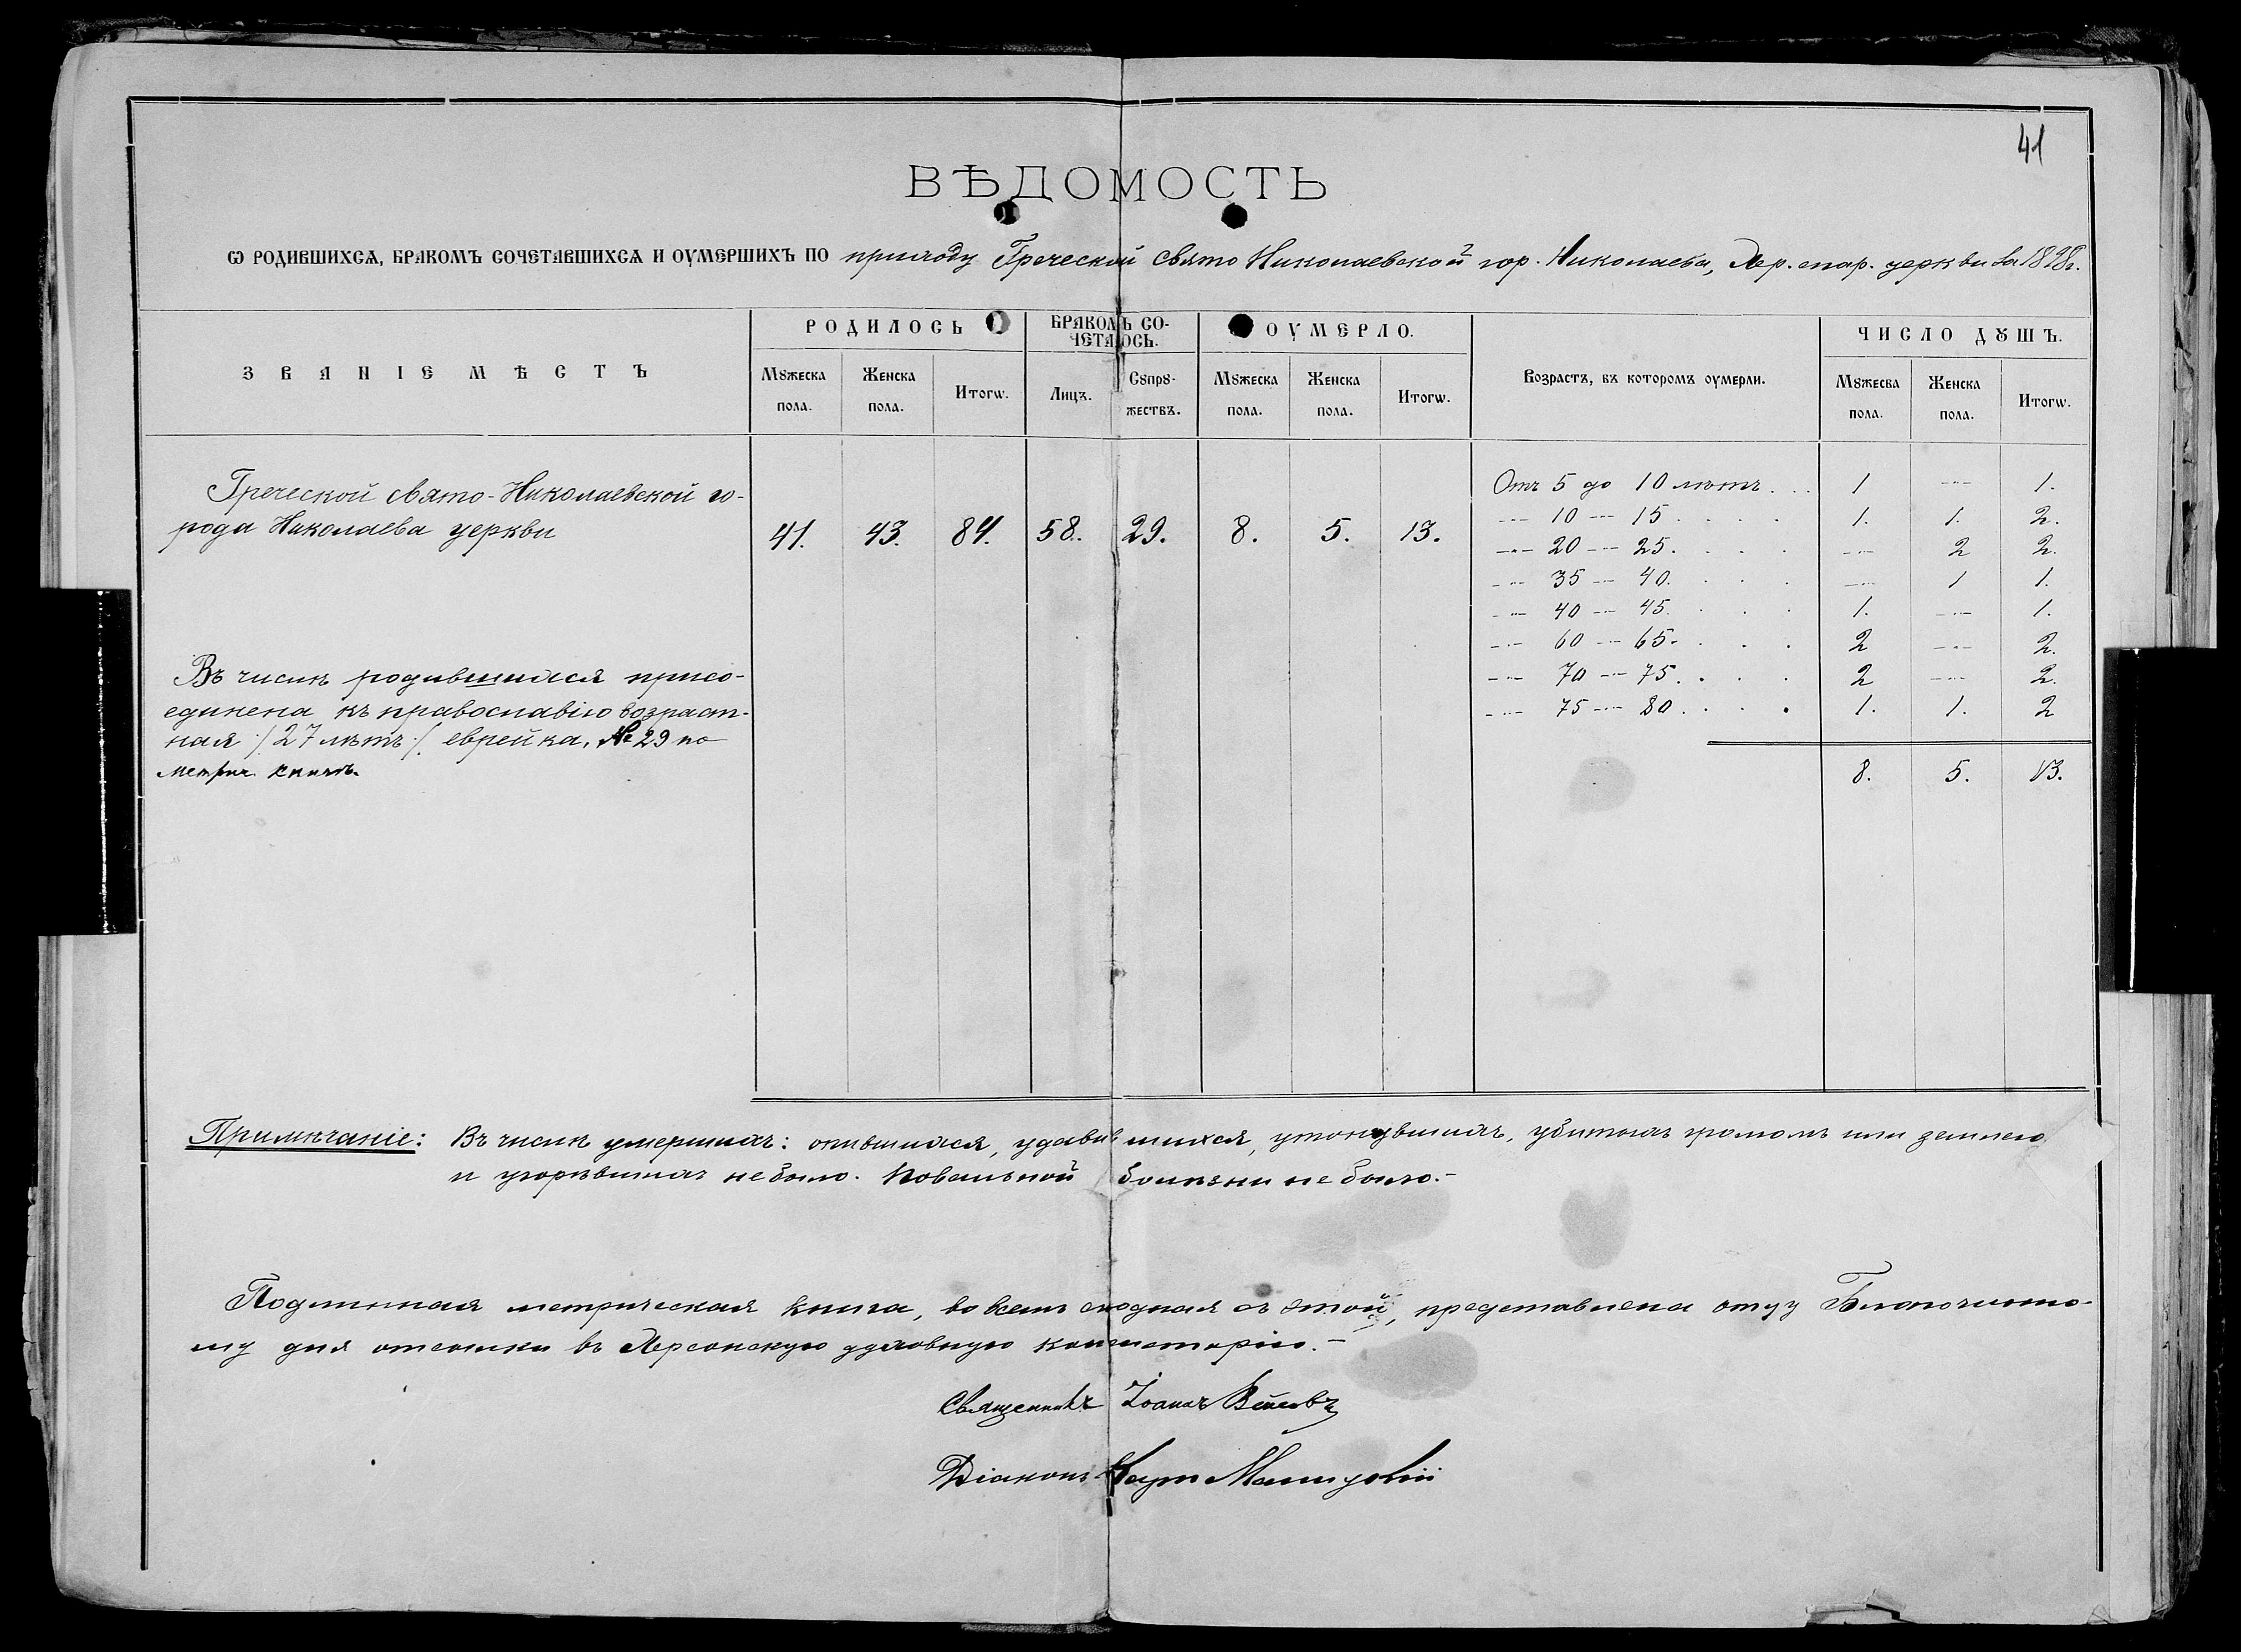 41
ВѢДОМОСТЬ
Ѡ РОДИВШИХСѦ, БРАКОМЪ СОЧЕТАВШИХСѦ И ОУМЕРШИХЪ ПО приходу Греческой Свято Николаевской гор. Николаева, Хер. епар. церкви за 1898 г.
ЗВАНІЕ МѢСТЪ
РОДИЛОСЬ
БРАКОМЪ СО-
ЧЕТАЛОСЬ.
ОУМЕРЛО.
Возрастъ, въ которомъ оумерли.
ЧИСЛО ДꙊШЪ.
Мꙋжеска пола. Женска пола. Итогѡ. Лицъ. Сꙋпрꙋ-жествъ. Мꙋжеска пола. Женска пола. Итогѡ. Мꙋжесва пола. Женска пола. Итогѡ.
Греческой свято-Николаевской го-
рода Николаева церкви
41. 43. 84. 58. 29. 8. 5. 13.
Отъ 5 до 10 лѣтъ . . . 1 -- 1.
-- 10 -- 15 . . . . 1. 1. 2.
-- 20 -- 25. . . . -- 2 2.
-- 35 -- 40. . . . -- 1 1.
-- 40 -- 45. . . . 1. -- 1.
-- 60 -- 65. . . . 2 -- 2.
-- 70 -- 75. . . . 2 -- 2.
-- 75 -- 80. . . . 1. 1. 2
8. 5. 13.
Въ числѣ родившихся присо-
единена къ православію возраст-
ная /27 лѣтъ/ еврейка, № 29 по
метрич. книгѣ.
Примѣчаніе: Въ числѣ умершихъ: опившихся, удавившихся, утонувшихъ, убитыхъ громомъ или землею
и угорѣвшихъ не было. Повальной болѣзни не было.-
Подлинная метрическая книга, во всемъ сходная съ этой, представлена отцу Благочинно-
му для отсылки въ Херсонскую духовную консисторію.-
Священникъ Іоаннъ
Діаконъ